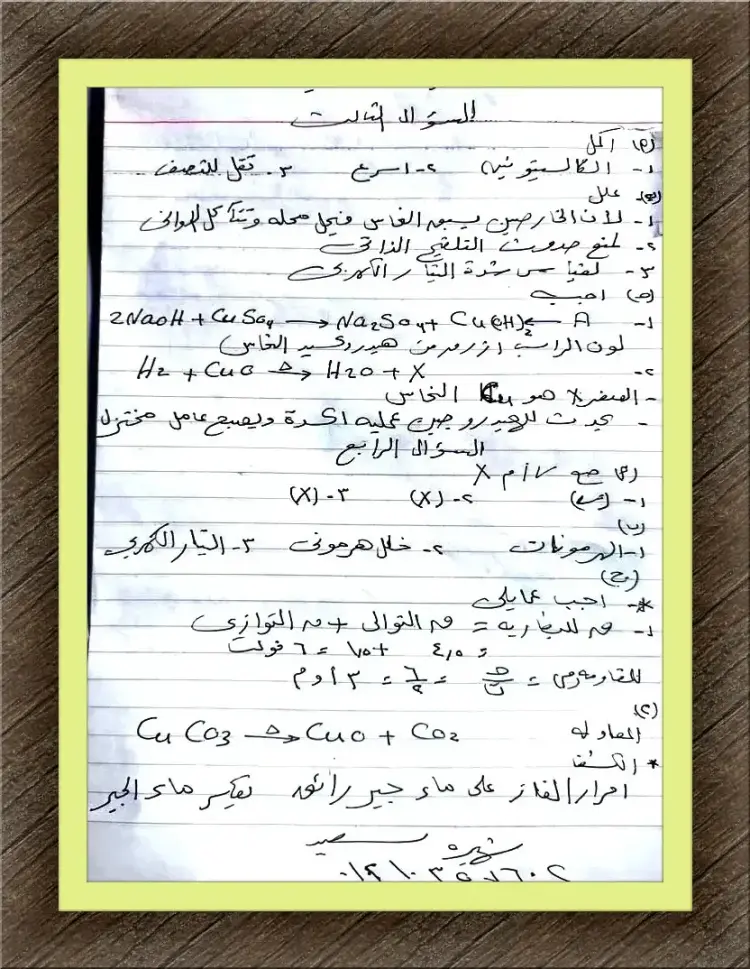 السؤال الثالث
(أ) اكمل
١- الكالسيتونين ٢- اسرع ٣- تقل للنصف
(ب) علل
١- لأن الخارصين يسبق النحاس فيحل محله وتتآكل الأواني
٢- لمنع حدوث التلقيح الذاتي
٣- لقياس شدة التيار الكهربي
(ج) اجب
١- 2NaOH + CuSo4 → Na2So4 + Cu(OH)2 ← A
لون الراسب ازرق من هيدروكسيد النحاس
٢- H2 + CuO △→ H2O + X
- العنصر X هو Cu النحاس
- يحدث للهيدروجين عمليه اكسدة ويصبح عامل مختزل
السؤال الرابع
(أ) ضع √ أم X
١- (√) ٢- (X) ٣- (X)
(ب)
١- الهرمونات ٢- خلل هرمونى ٣- التيار الكهربي
(ج)
*- اجب عما يلى
١- قد للبطاريه = قد التوالى + قد التوازى
= ٤,٥ + ١,٥ = ٦ فولت
المقاومه م = جـ/ت = ٦/٢ = ٣ أوم
(٢)
المعادله Cu CO3 △→ CuO + CO2
* الكشف
امرار الغاز على ماء جير رائق يعكر ماء الجير
شهيره سعيد